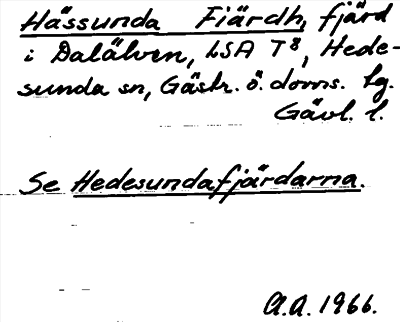 Hässunda Fiärdh, fjärd
i Dalälven, LSA T⁸, Hede-
sunda sn, Gästr. ö. doms. lg.
Gävl. l.
Se Hedesundafjärdarna.
A.A. 1966.